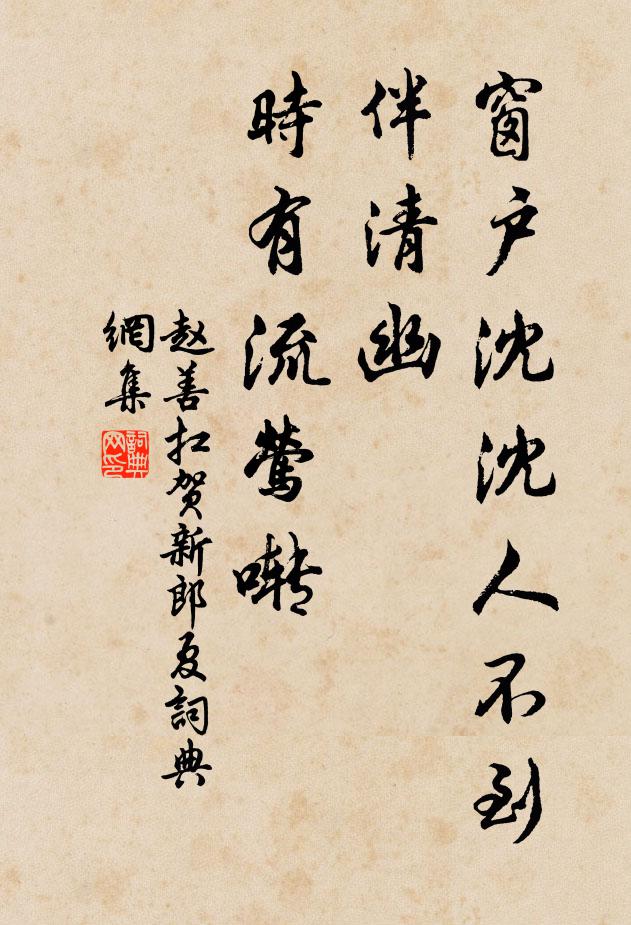 窗户沈沈人不到
伴清幽
時有流莺啭
赵善扛贺新郎夏詞典
網集
詞典網印